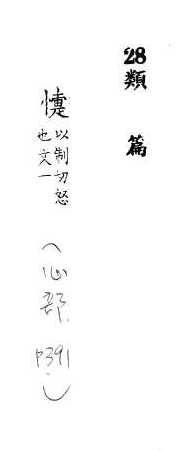 28 類篇
懥 以制切怒
也文一
(心部 P391)